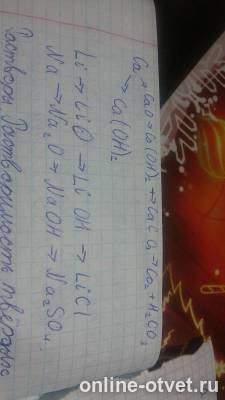 Ca → CaO → Ca(OH)₂ → CaCO₃ → CO₂ + H₂CO₃
→ Ca(OH)₂
Li → LiO → LiOH → LiCl
Na → Na₂O → NaOH → Na₂SO₄.
Растворы Растворимость твёрдых
online-otvet.ru